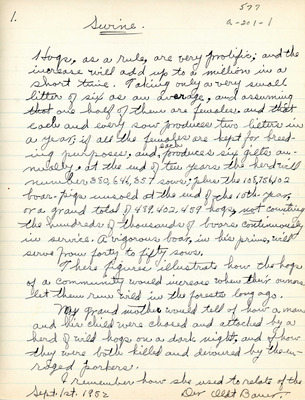 577
1.
Swine.
a-201-1
Hogs, as a rule, are very prolific; and the
increase will add up to a million in a
short time. Taking only a very small
litter of six as an average, and assuming
that one half of them are females, and that
each and every sow produces two litters in
a year; if all the females are kept for breed-
ing purposes, and, each produces six gilts an-
nually, at the end of ten years the herd will
number 350,646,357 sows; plus the 108,756,102
boar-pigs unsold at the end of the 10th. year,
or a grand total of 459,402,459 hogs, not counting
the hundreds of thousands of boars continuously
in service. A vigorous boar, in his prime, will
serve from forty to fifty sows.
These figures illustrate how the hogs
of a community would increase when their owners
let them run wild in the forests long ago.
My grandmother would tell of how a man
and his child were chased and attacked by a
herd of wild hogs on a dark night, and of how
they were both killed and devoured by the en-
raged porkers.
I remember how she used to relate of the
Sept. 1st. 1952 Der Oldt Bauer.